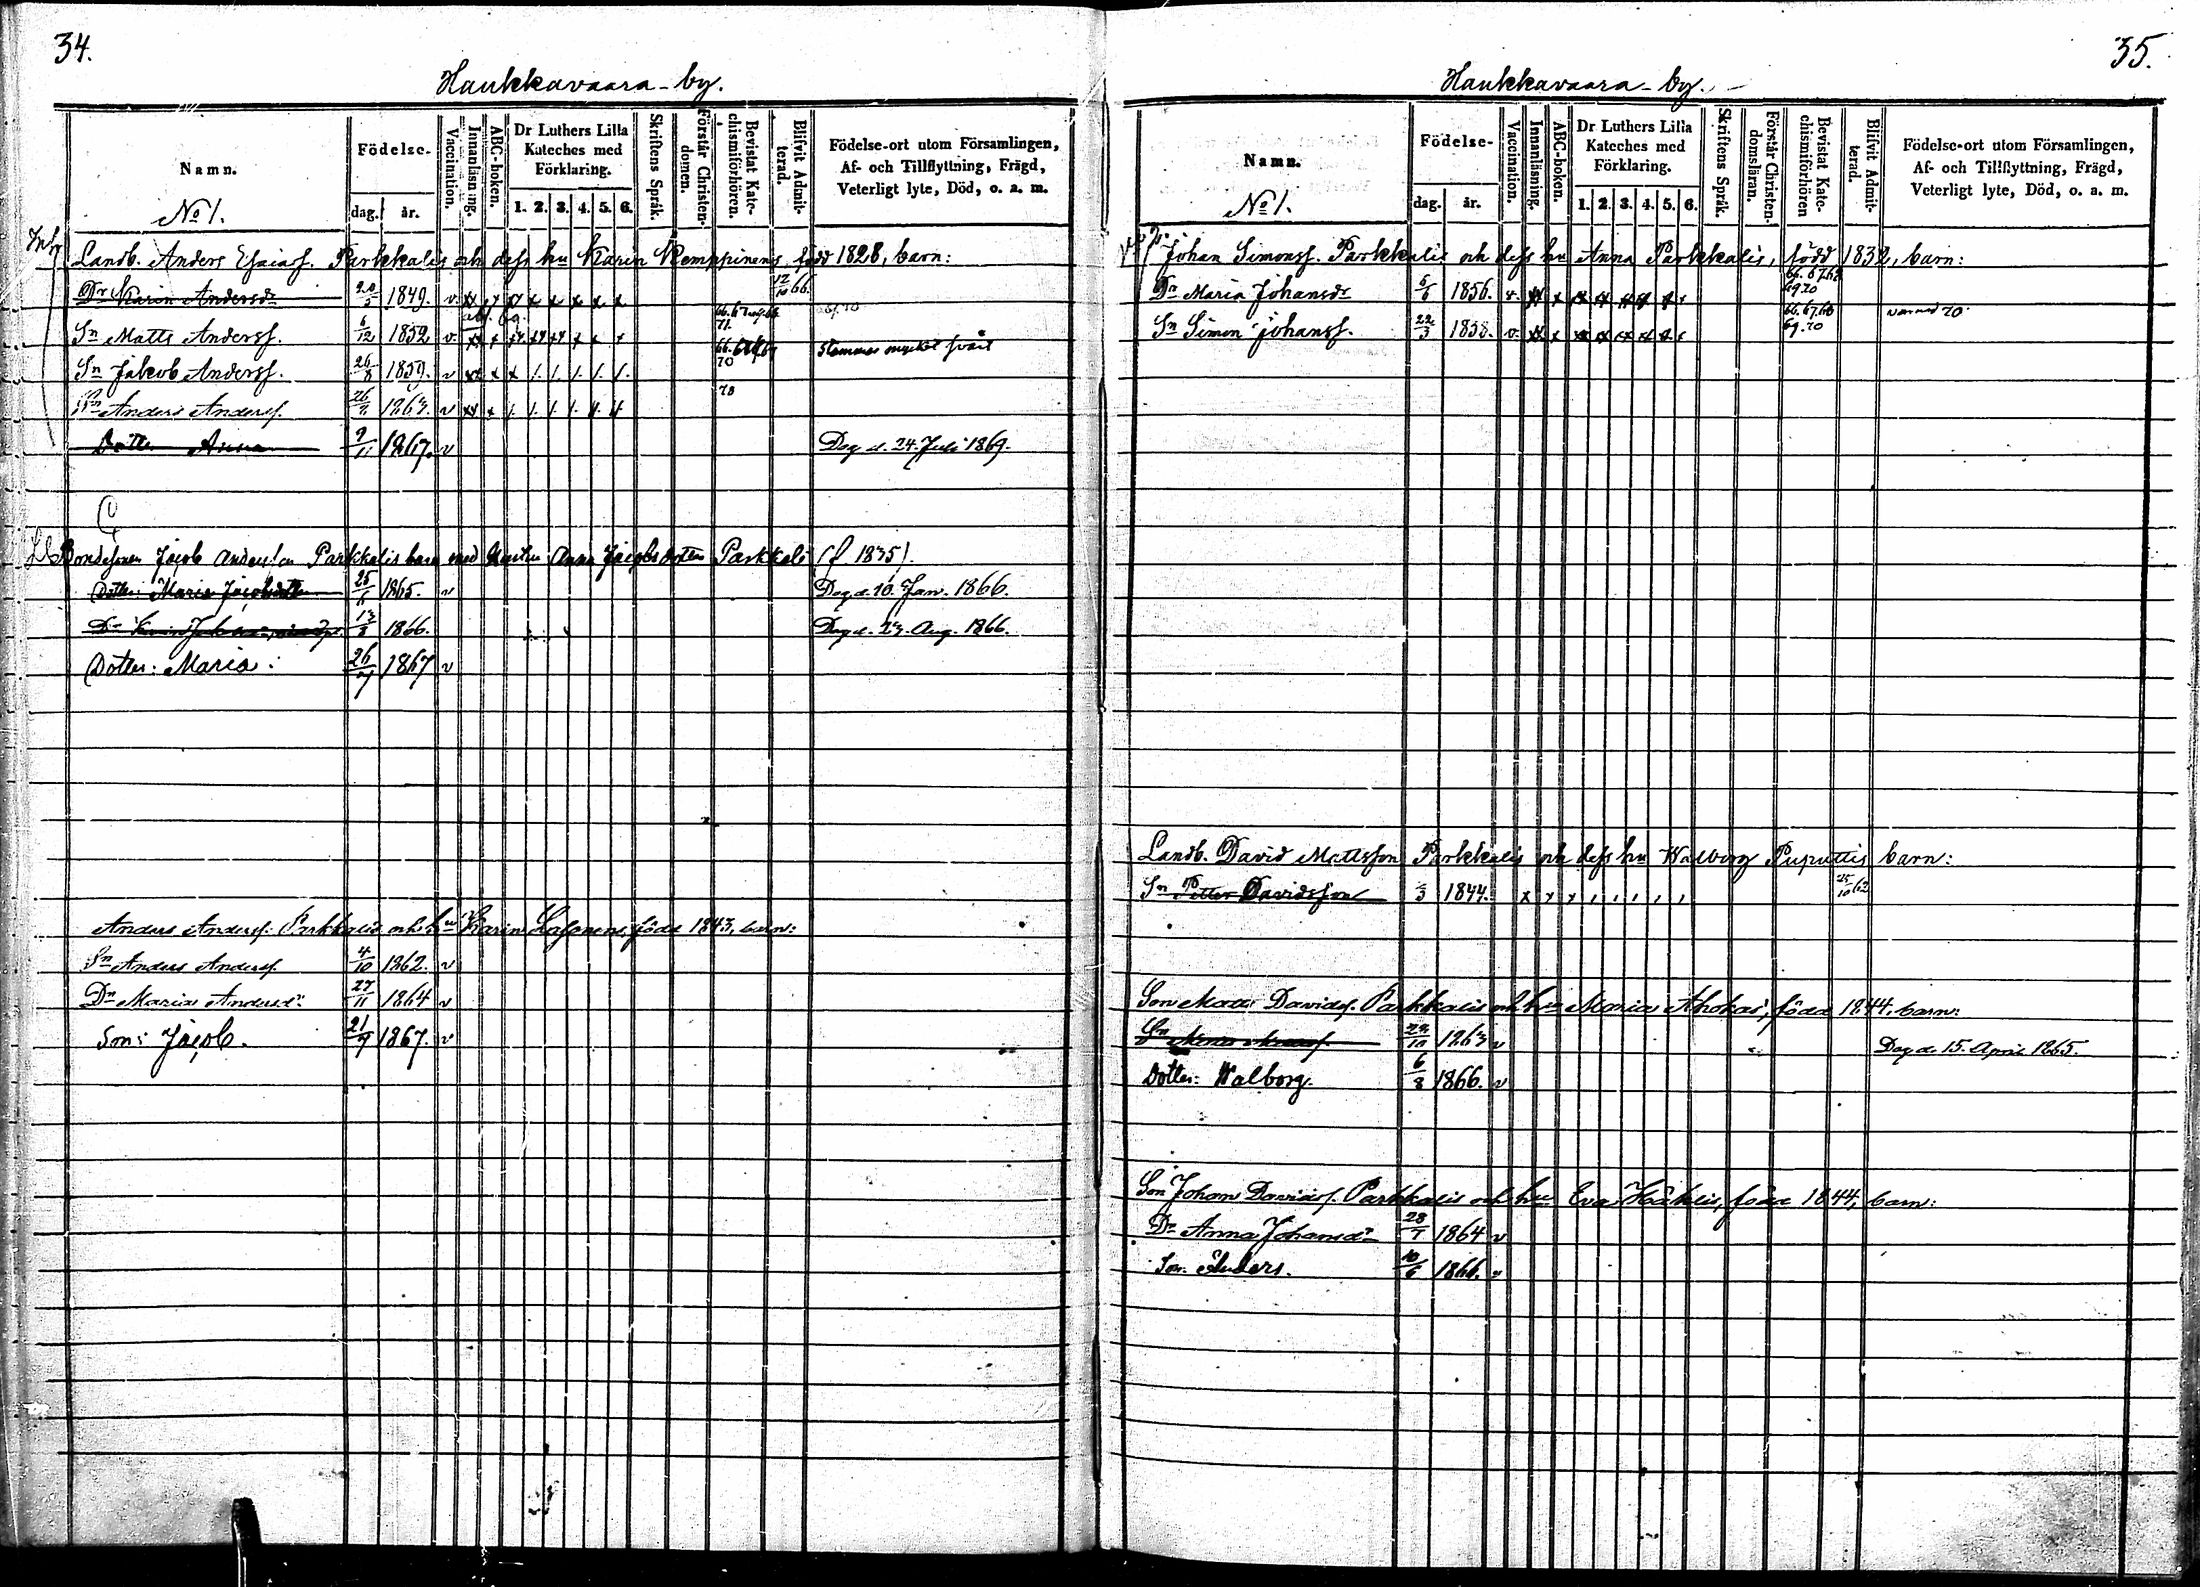 34.
Haukkavaara-by.
Namn.
No 1.
Födelse-
dag. år.
Vaccination.
Innanläsning.
ABC-boken.
Dr Luthers Lilla Kateches med Förklaring.
1. 2. 3. 4. 5. 6.
Skriftens Språk.
Förstår Christendomen.
Bevistat Katechismiförhören.
Blifvit Admitterad.
Födelse-ort utom Församlingen,
Af- och Tillflyttning, Frägd,
Veterligt lyte, Död, o. a. m.
Landb. Anders Esaiasf. Parkkalis och dess hu Karin Kemppinens, född 1828, barn:
Dr Karin Andersdr 1849. v. 12/10 66.
Sn Matts Andersf. 6/12 1852 v.
Sn Jakob Andersf. 26/8 1859. v Stammar mycket svårt
Sn Anders Andersf. 1863. v 70
Dotter Anna 9/11 1867. v Dog d. 24. Juli 1869.
Bondesonen Jacob Andersson Parkkalis barn med hustru Anna Jacobsdotter Parkkali (f. 1835).
Dotter: Maria Jacobsdotter 1865. v Dog d. 10. Jan. 1866.
Dr 13/8 1866. Dog d. 23. Aug. 1866.
Dotter: Maria: 26/7 1867 v
Anders Andersf. Parkkalis och hu Karin Lasonens, född 1843, barn:
Sn Anders Andersf. 4/10 1862. v
Dr Maria Andersdr 27/11 1864 v
Son: Jacob. 21/9 1867. v
35.
Haukkavaara-by.
Namn.
No 1.
Födelse-
dag. år.
Vaccination.
Innanläsning.
ABC-boken.
Dr Luthers Lilla Kateches med Förklaring.
1. 2. 3. 4. 5. 6.
Skriftens Språk.
Förstår Christendomsläran.
Bevistat Katechismiförhören
Blifvit Admitterad.
Födelse-ort utom Församlingen,
Af- och Tillflyttning, Frägd,
Veterligt lyte, Död, o. a. m.
Johan Simonsf. Parkkalis och dess hu Anna Parkkalis, född 1832, barn:
Dr Maria Johansdr 6/6 1856. v. 66. 67. 68 69. 70
Sn Simon Johansf. 22/3 1858. v. 66. 67. 68 69. 70
Landb. David Mattsson Parkkalis och dess hu Walborg Puputtis barn:
Sn Petter Davidsson 1844. 25/10 62
Son Matts Davidsf. Parkkalis och hu Maria Ahokas, född 1844, barn:
Sn 1863 v Dog d. 15. April 1865.
Dotter: Walborg. 6/8 1866. v
Son Johan Davidsf. Parkkalis och hu Eva Häklis, född 1844, barn:
Dr Anna Johansdr 1864 v
Son: Anders. 10/6 1866. v